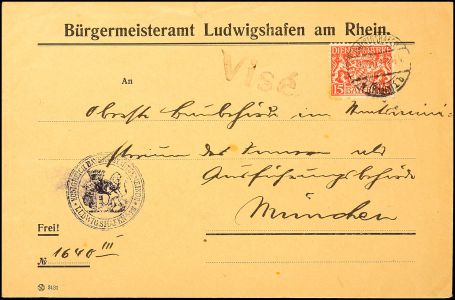 Bürgermeisteramt Ludwigshafen am Rhein.
DIENSTMARKE
15
Visé
An
Oberste Baubehörde im
des Innern als
Ausführungsbehörde
München
LUDWIGSHAFEN
Frei!
№ 1640 III
3131